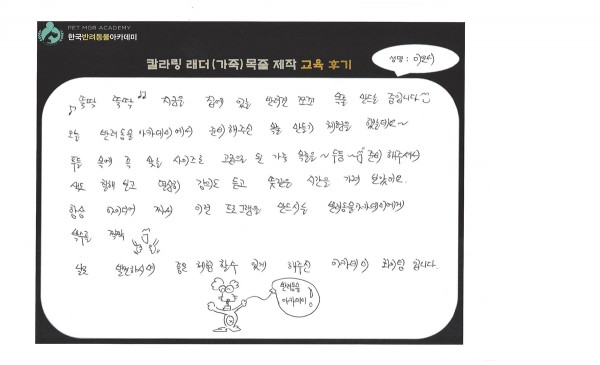 PET MGR ACADEMY
한국반려동물아카데미
칼라링 래더(가죽)목줄 제작 교육 후기
성명 :
♪ 뚝딱 뚝딱 ♫ 지금은 집에 있는 반려견 꼬꼬 목줄 만드는 중입니다
오늘 반려동물아카데미에서 준비해주신 목줄 만들기 체험을 했는데요~
목에 사이즈로 고급스러운 가죽 목줄을 준비 해주셔서
색도 칠해 보고 열심히 강의도 듣고 뜻깊은 시간을 가져 보았어요.
항상 아이디어 짜서 이런 프로그램을 만드시는 반려동물아카데미에게
박수를 짝짝
날로 발전하시며 좋은 체험 할수 있게 해주신 아카데미 화이팅 입니다.
반려동물
아카데미!